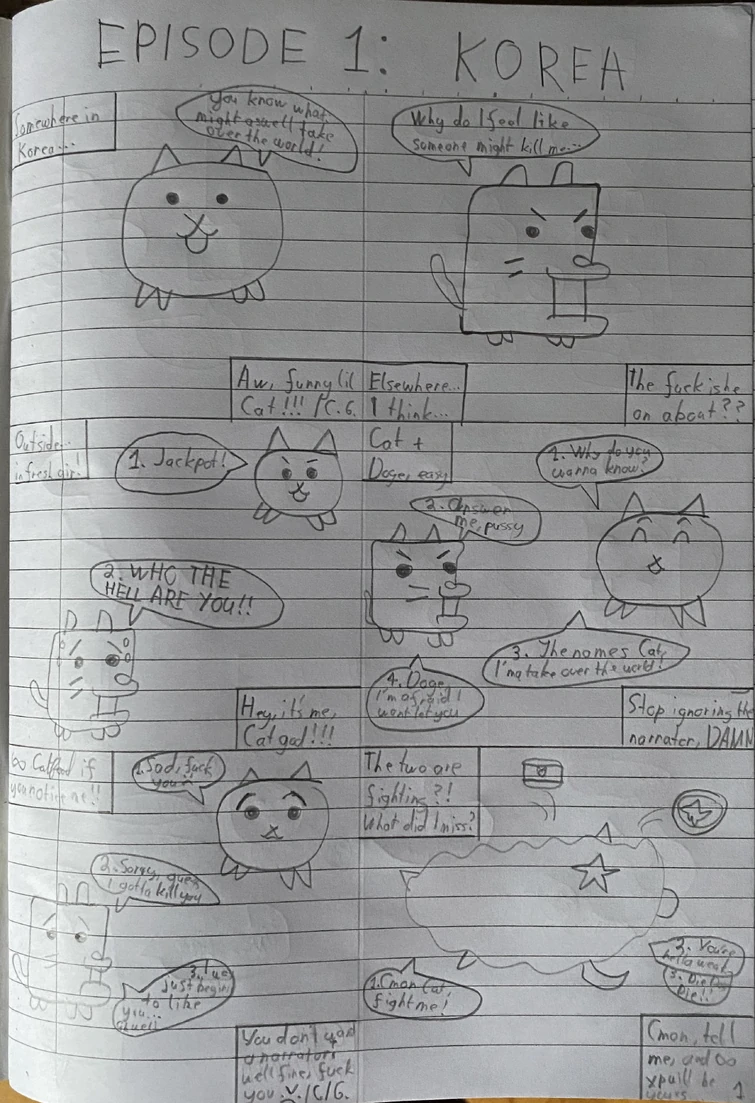 EPISODE 1: KOREA
Somewhere in
Korea...
You know what
might aswell take
over the world!
Aw, funny lil
Cat!!! /C.G.
Why do I feel like
someone might kill me...
Elsewhere...
I think...
The fuck is he
on about??
Outside...
in fresh air!
1. Jackpot!
2. WHO THE
HELL ARE YOU!!
Hey, it's me,
Cat god!!!
Cat +
Doge, easy
1. Why do you
wanna know?
2. Answer
me, pussy
3. The names Cat,
I'ma take over the world!
4. Doge,
I'm afraid I
wont let you
Stop ignoring the
narrator, DAMN
∞ Catfood if
you notice me!!
1. Sod, fuck
you!!
2. Sorry, guess
I gotta kill you
3. I was
just begin
to like
you...
You don't want
a narrator?
well fine, fuck
you /C/G.
The two are
fighting?!
What did I miss?
1. Cmon Cat,
fight me!
2. You're
hella weak
3. Die Die
Die!!
Cmon, tell
me, and ∞
xp will be
yours
1